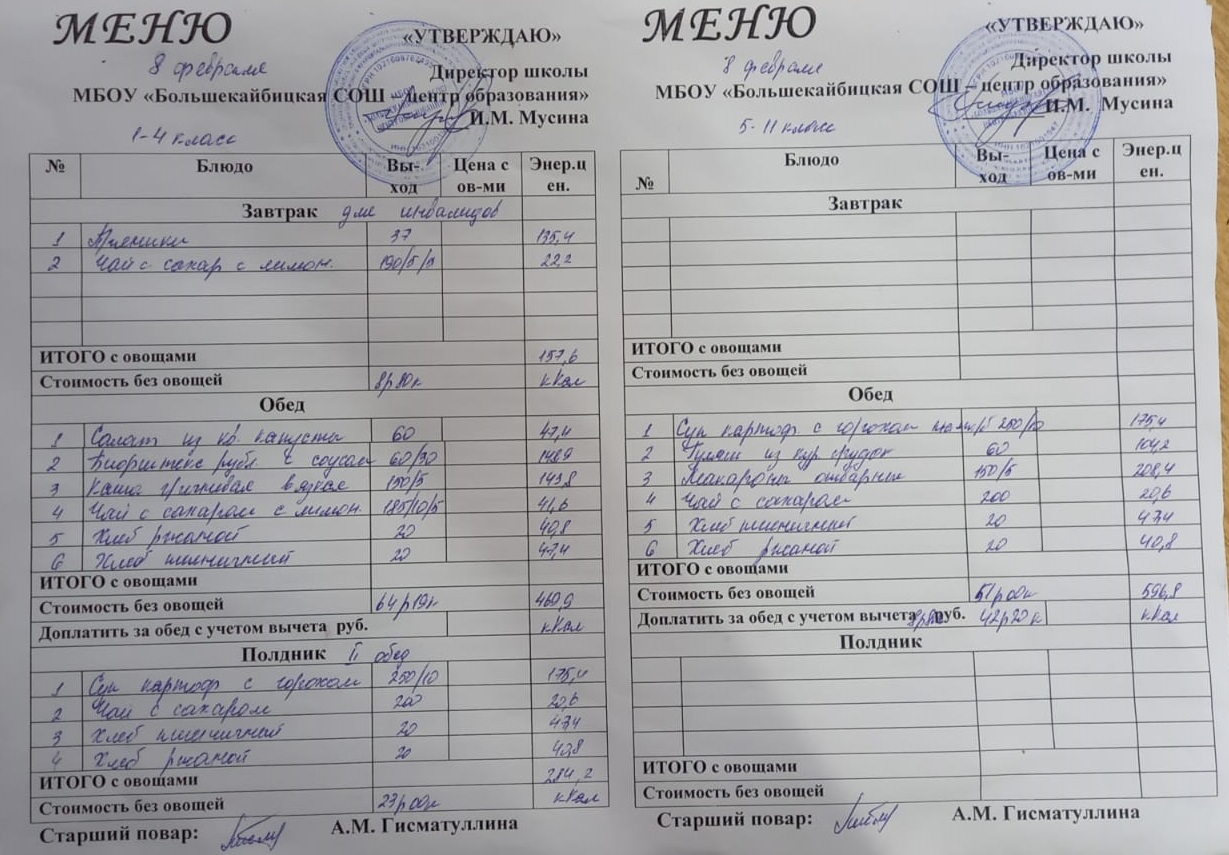 МЕНЮ
«УТВЕРЖДАЮ»
8 февраля
Директор школы
МБОУ «Большекайбицкая СОШ – центр образования»
И.М. Мусина
1-4 класс
№ Блюдо Вы-ход Цена с ов-ми Энер.ц ен.
Завтрак для инвалидов
1 Пряники 37 135,4
2 Чай с сахар с лимон. 190/5/ 22,2
ИТОГО с овощами 157,6
Стоимость без овощей 8р80к кКал
Обед
1 Салат из кв. капусты 60 47,4
2 Бифштекс рубл. с соусом 60/30 142,9
3 Каша гречневая вязкая 150/5 149,8
4 Чай с сахаром с лимон. 185/10/5 41,6
5 Хлеб ржаной 20 40,8
6 Хлеб пшеничный 20 47,4
ИТОГО с овощами
Стоимость без овощей 64р19к 469,9
Доплатить за обед с учетом вычета руб. кКал
Полдник II обед
1 Суп картоф с горохом 250/10 175,4
2 Чай с сахаром 200 20,6
3 Хлеб пшеничный 20 47,4
4 Хлеб ржаной 20 40,8
ИТОГО с овощами 284,2
Стоимость без овощей 23р00к кКал
Старший повар: А.М. Гисматуллина
МЕНЮ
«УТВЕРЖДАЮ»
8 февраля
Директор школы
МБОУ «Большекайбицкая СОШ – центр образования»
И.М. Мусина
5-11 класс
№ Блюдо Вы-ход Цена с ов-ми Энер.ц ен.
Завтрак
ИТОГО с овощами
Стоимость без овощей
Обед
1 Суп картоф. с горохом 250/10 175,4
2 Гуляш из кур грудок 60 104,2
3 Макароны отварные 150/5 208,4
4 Чай с сахаром 200 20,6
5 Хлеб пшеничный 20 47,4
6 Хлеб ржаной 20 40,8
ИТОГО с овощами
Стоимость без овощей 51р00к 596,8
Доплатить за обед с учетом вычета 8р80к руб. 42р20к кКал
Полдник
ИТОГО с овощами
Стоимость без овощей
Старший повар: А.М. Гисматуллина